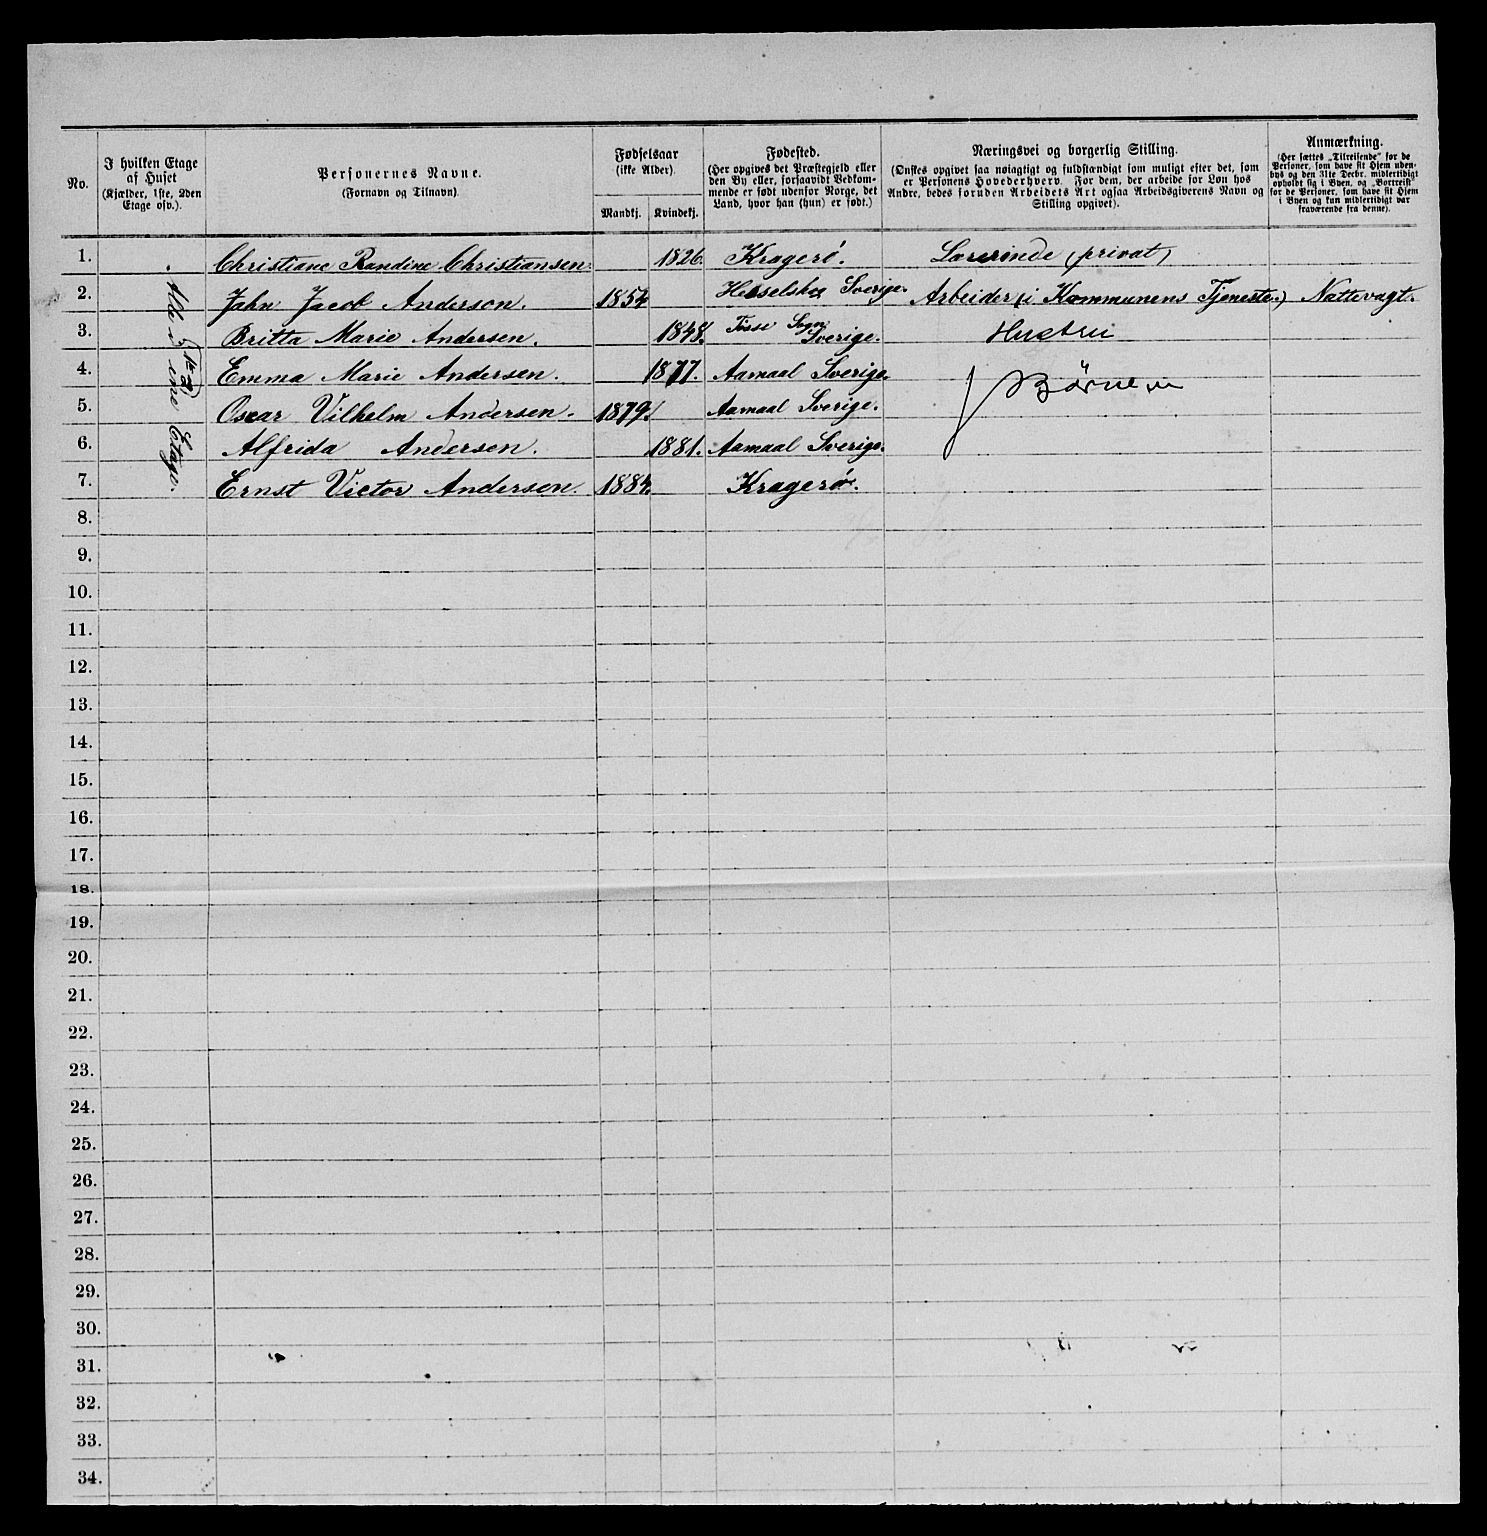 No.
I hvilken Etage af Huset (Kjælder, 1ste, 2den Etage osv.).
Personernes Navne. (Fornavn og Tilnavn).
Fødselsaar (ikke Alder).
Mandkj. Kvindekj.
Fødested. (Her opgives det Præstegjeld eller den By eller, forsaavidt Vedkommende er født udenfor Norge, det Land, hvor han (hun) er født.)
Næringsvei og borgerlig Stilling. (Ønskes opgivet saa nøiagtigt og fuldstændigt som muligt efter det, som er Personens Hovederhverv. For dem, der arbeide for Løn hos Andre, bedes foruden Arbeidets Art ogsaa Arbeidsgiverens Navn og Stilling opgivet).
Anmærkning. (Her sættes „Tilreisende“ for de Personer, som have sit Hjem udenbys og den 31te Decbr. midlertidigt opholdt sig i Byen, og „Bortreist“ for de Personer, som have sit Hjem i Byen og kun midlertidigt var fraværende fra denne).
Etage.
1. Christiane Randine Christiansen. 1826. Kragerø. Lærerinde (privat)
2. Jahn Jacob Anderson. 1854 Sverige. Arbeider (i Kommunens Tjeneste) Nattevagt.
3. Britta Marie Andersen. 1848. Tösse Sogn Sverige. Hustru
4. Emma Marie Andersen. 1877. Aamaal Sverige. Børnene
5. Oscar Vilhelm Andersen. 1879. Aamaal Sverige.
6. Alfrida Andersen. 1881. Aamaal Sverige.
7. Ernst Victor Andersen. 1884. Kragerø.
8.
9.
10.
11.
12.
13.
14.
15.
16.
17.
18.
19.
20.
21.
22.
23.
24.
25.
26.
27.
28.
29.
30.
31.
32.
33.
34.